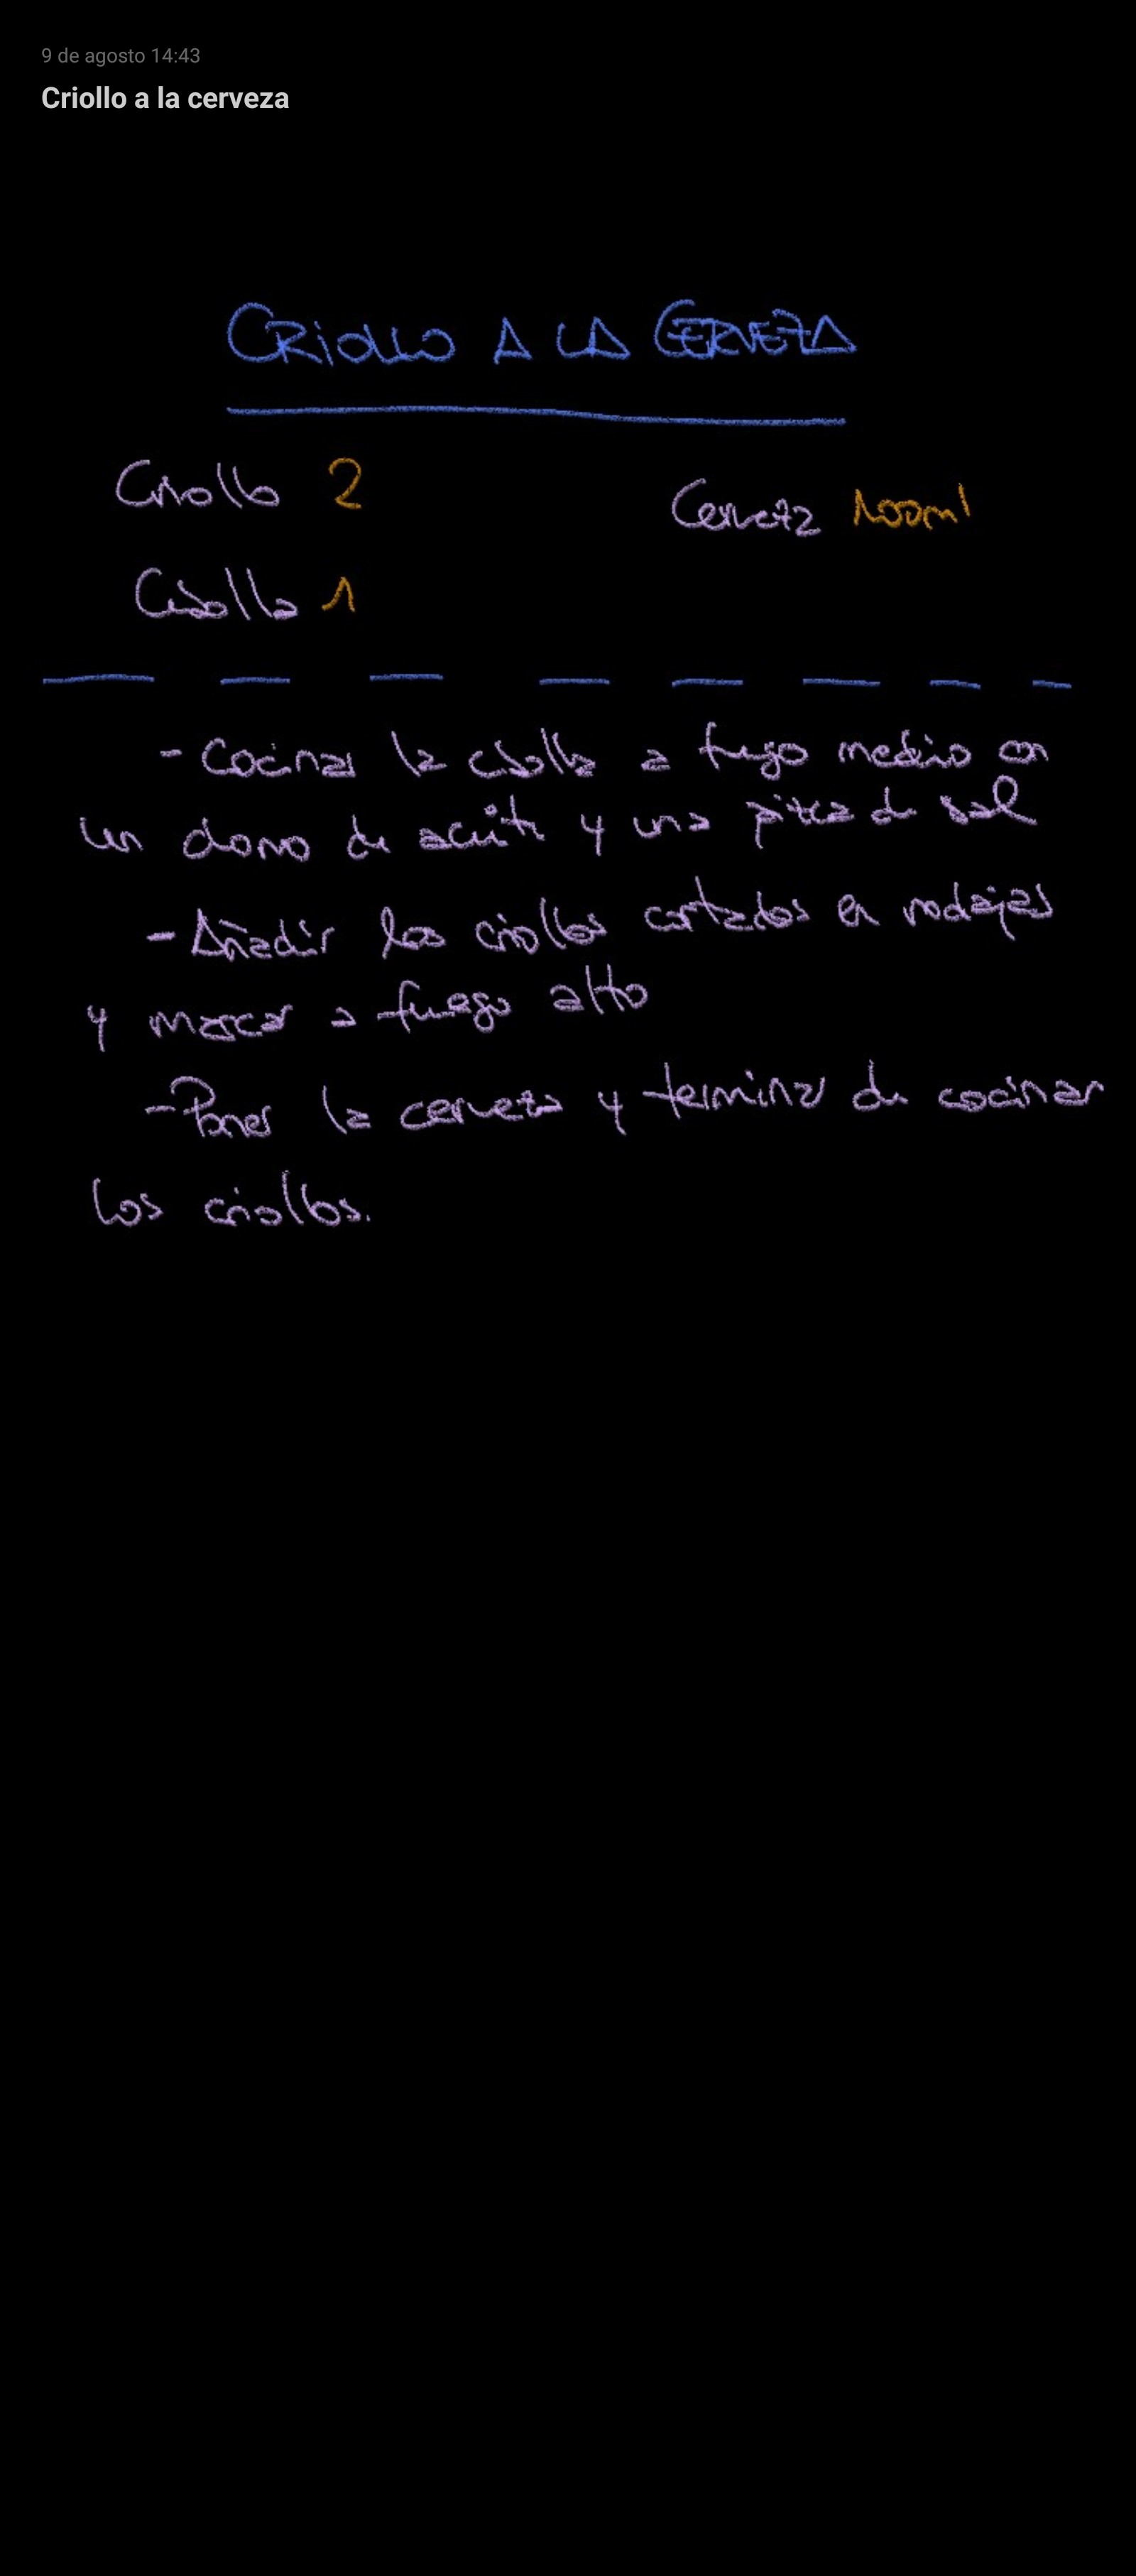 9 de agosto 14:43
Criollo a la cerveza
CRiOLLO A LA CERVEZA
Criollo 2
Cerveza 100ml
Cebolla 1
- Cocinar la cbolla a fuego medio con
un chorro de aceite y una pizca de sal
- Añadir los criollos cortados en rodajas
y marcar a fuego alto
- Poner la cerveza y terminar de cocinar
los criollos.